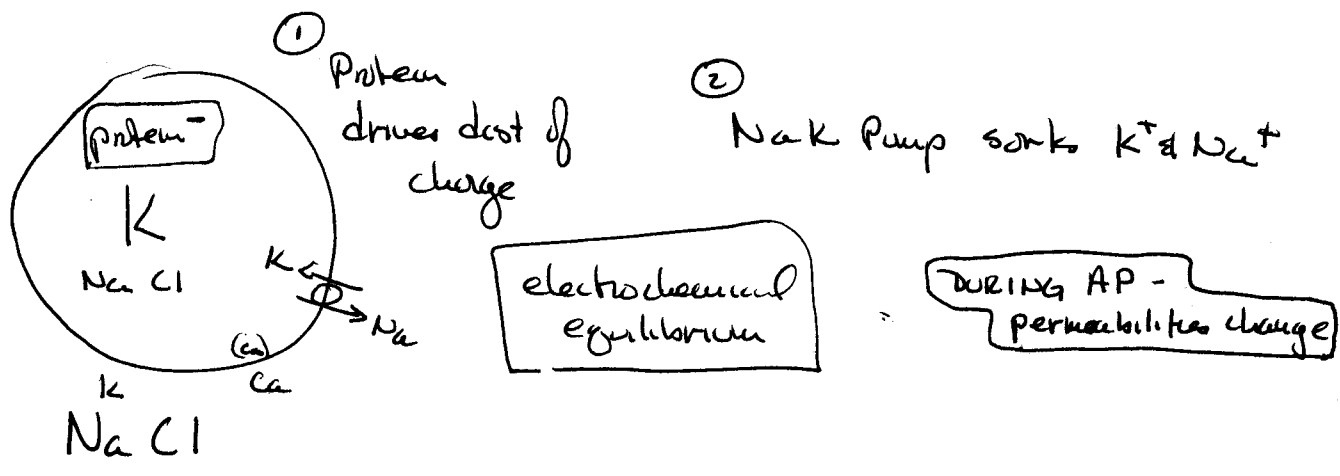 ①
Protein
drives dist of
charge
②
Na K Pump sorts K⁺ & Na⁺
protein⁻
K
Na Cl
K
Na
(Ca)
Ca
K
Na Cl
electrochemical
equilibrium
DURING AP -
permeabilities change